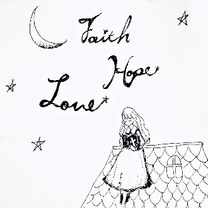 Faith
Hope
Love